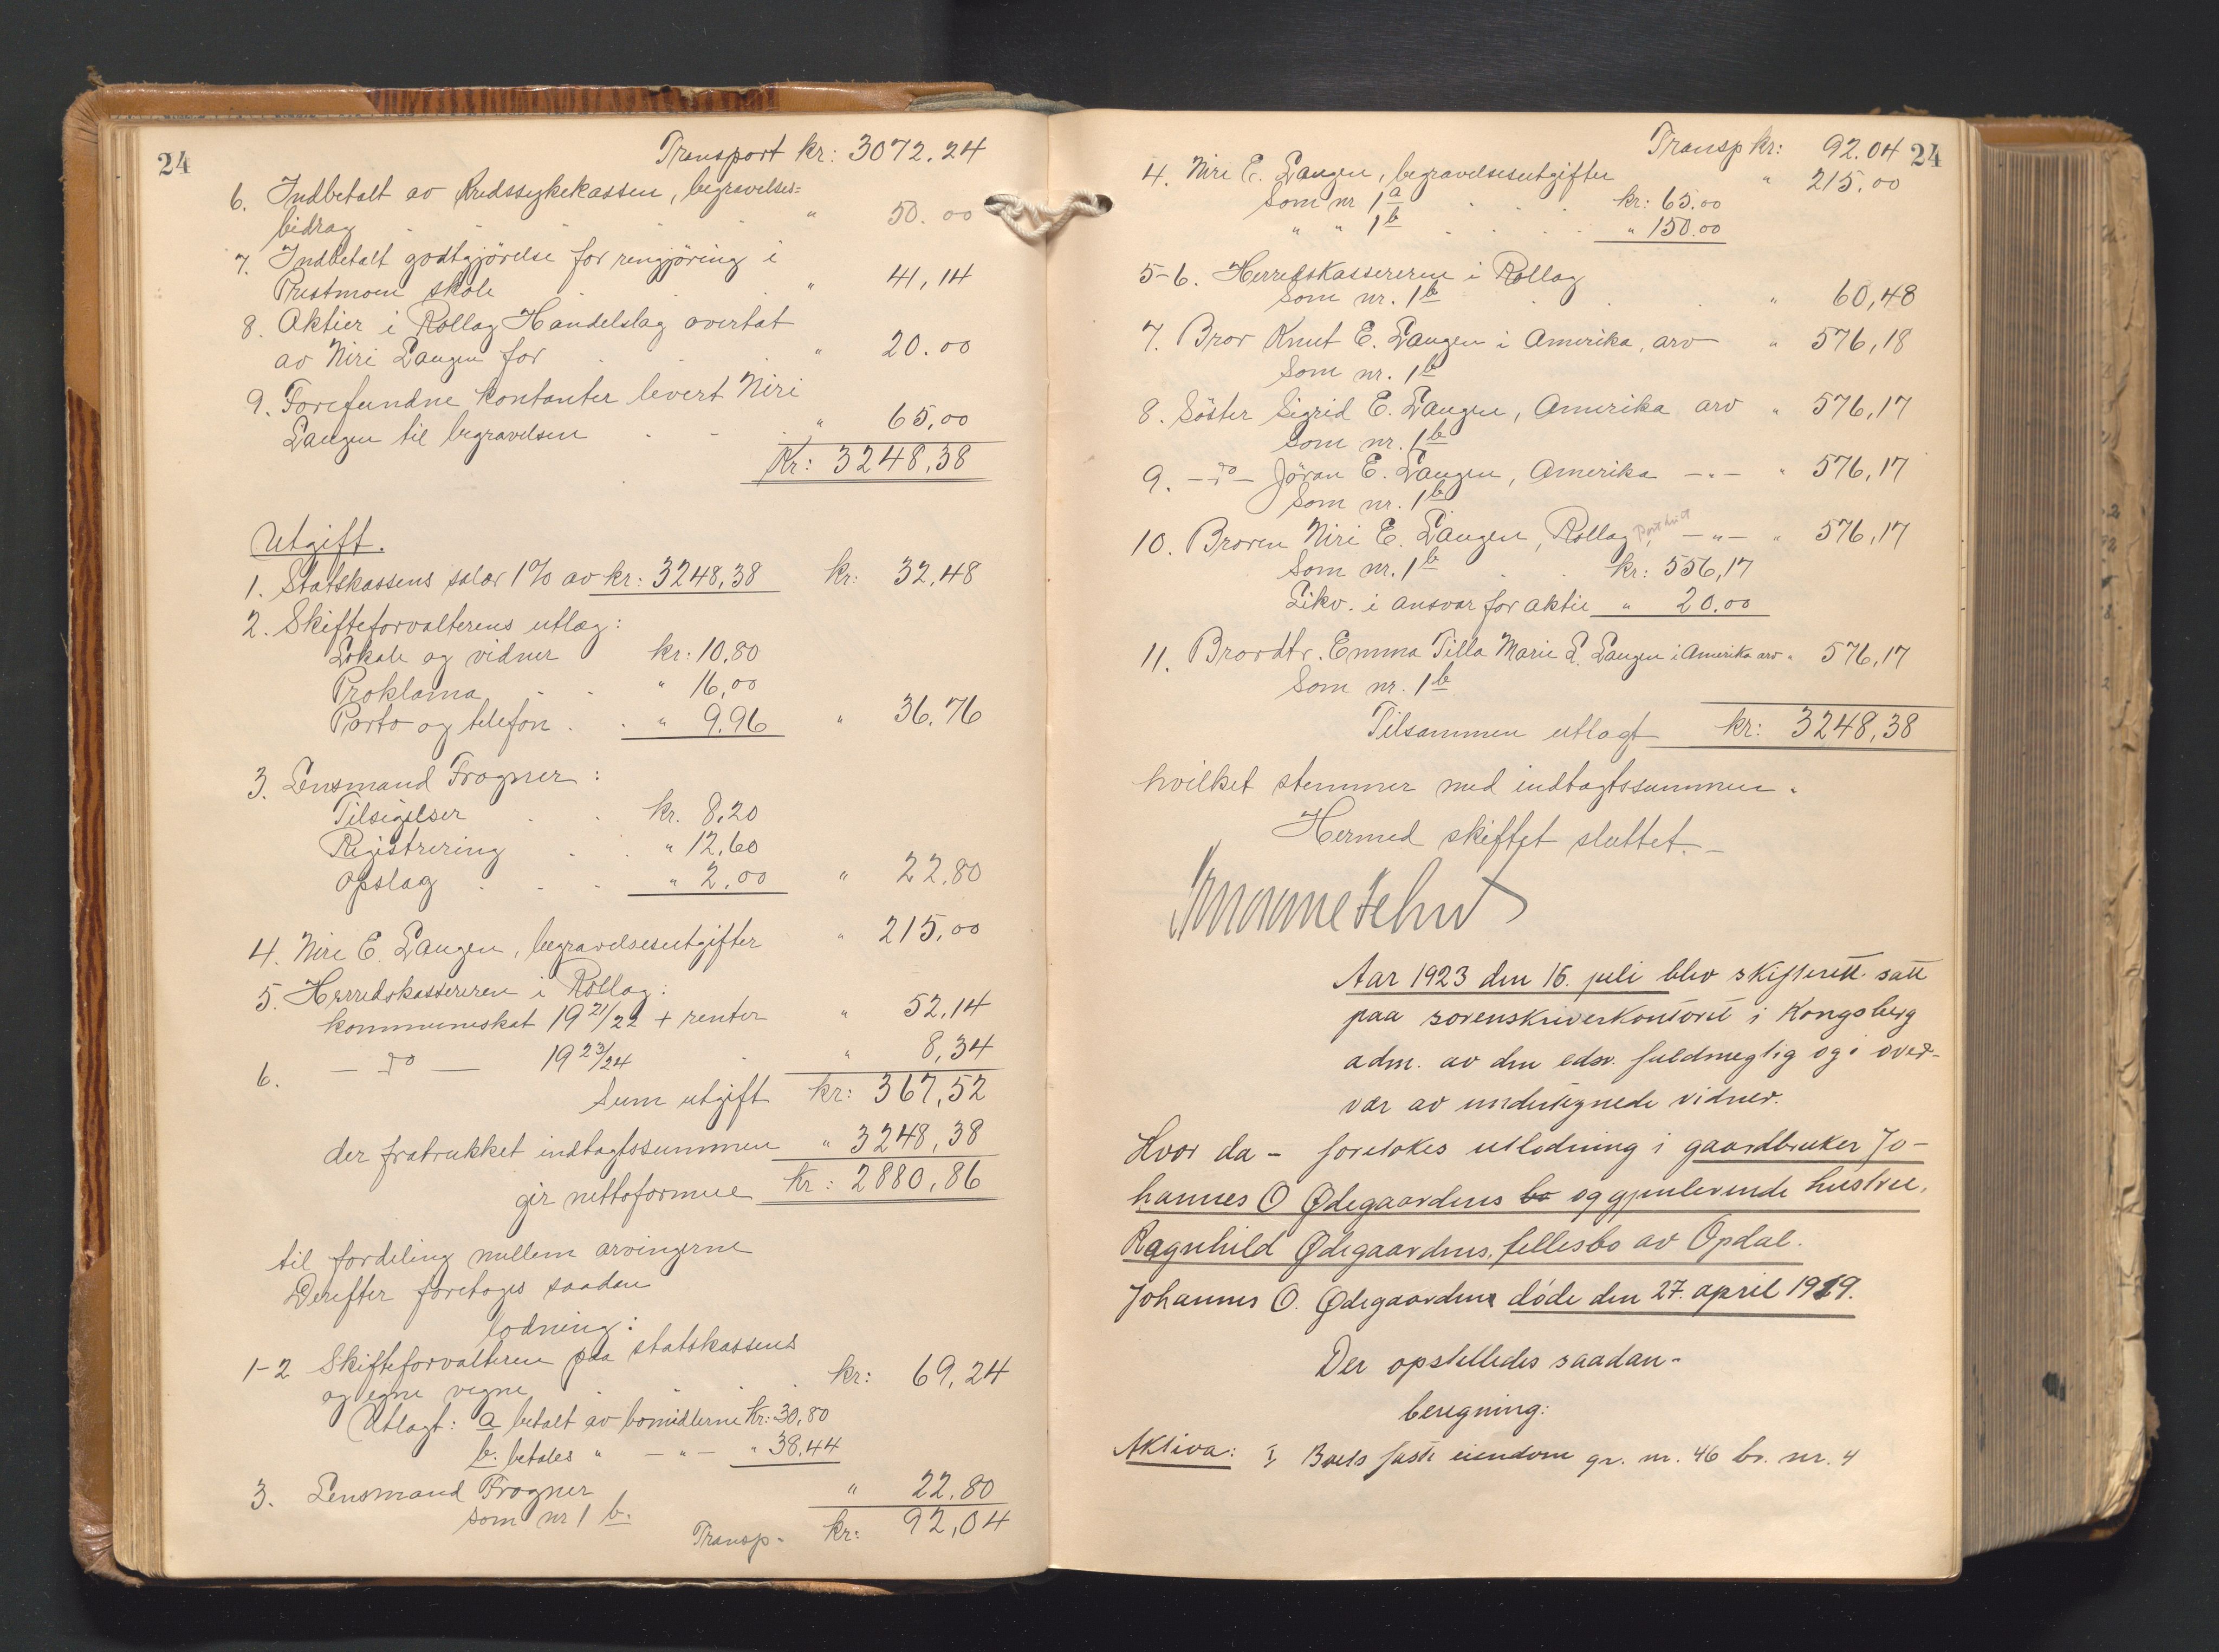 24
Transport kr: 3072.24
6. Indbetalt av Kredssykekassen, begravelses=
bidrag . . . " 50.00
7. Indbetalt godtgjörelse for rengjöring i
Prestmoen skole . . . " 41,14
8. Aktier i Rollag Handelslag overtat
av Niri Langen for . . . " 20.00
9. Forefundne kontanter levert Niri
Langen til begravelsen . . . " 65,00
Kr: 3248,38
Utgift.
1. Statskassens salær 1% av kr: 3248,38 kr: 32,48
2. Skifteforvalterens utlæg:
Lokale og vidner kr: 10,80
Proklama . . " 16,00
Porto og telefon . . " 9.96 " 36.76
3. Lensmand Frogner:
Tilsigelser . . kr. 8,20
Registrering . . " 12,60
Opslag . . . " 2,00 " 22,80
4. Niri E. Langen, begravelsesutgifter " 215,00
5. Herredskassereren i Rollag:
kommuneskat 19 21/22 + renter " 52,14
6. — do — 19 23/24 . " 8,34
Sum utgift kr: 367,52
der fratrukket indtægtssummen " 3248,38
gir nettoformue kr: 2880,86
til fordeling mellem arvingerne
Derefter foretoges saadan
lodning:
1-2 Skifteforvalteren paa statskassens
og egne vegne . . . kr: 69,24
Utlagt: a betalt av bomidlerne Kr: 30,80
b. betales " — " — " 38,44
3. Lensmand Frogner " 22,80
som nr 1 b.
Transp. kr: 92,04
24
Transp kr: 92.04
4. Niri E. Langen, begravelsesutgifter " 215,00
Som nr 1 a . . . kr: 65.00
" " 1 b . . . . " 150.00
5-6. Herredskassereren i Rollag
Som nr. 1 b . . . " 60,48
7. Bror Knut E. Langen i Amerika, arv " 576,18
Som nr. 1 b
8. Söster Sigrid E. Langen, Amerika arv " 576,17
Som nr. 1 b
9. — do — Jöran E. Langen, Amerika — " — " 576,17
Som nr. 1 b
10. Broren Niri E. Langen, Rollag, — " — " 576,17
Som nr. 1 b . . kr: 556,17
Likv. i ansvar for aktie " 20.00
11. Brordtr. Emma Tilla Marie L. Langen i Amerika arv " 576,17
Som nr. 1 b
Tilsammen utlagt kr: 3248,38
hvilket stemmer med indtægtssummen.
Hermed skiftet sluttet.—
Aar 1923 den 16. juli blev skifterett satt
paa sorenskriverkontoret i Kongsberg
adm. av den edsv. fuldmegtig og i over-
vær av undertegnede vidner.
Hvor da – foretokes utlodning i gaardbruker Jo-
hannes O Ødegaardens bo og gjenlevende hustru,
Ragnhild Ødegaardens, fellesbo av Opdal.
Johannes O. Ødegaarden døde den 27. april 1919.
Der opstilledes saadan-
beregning:
Aktiva: 1, Boets faste eiendom gr. nr. 46 br. nr. 4